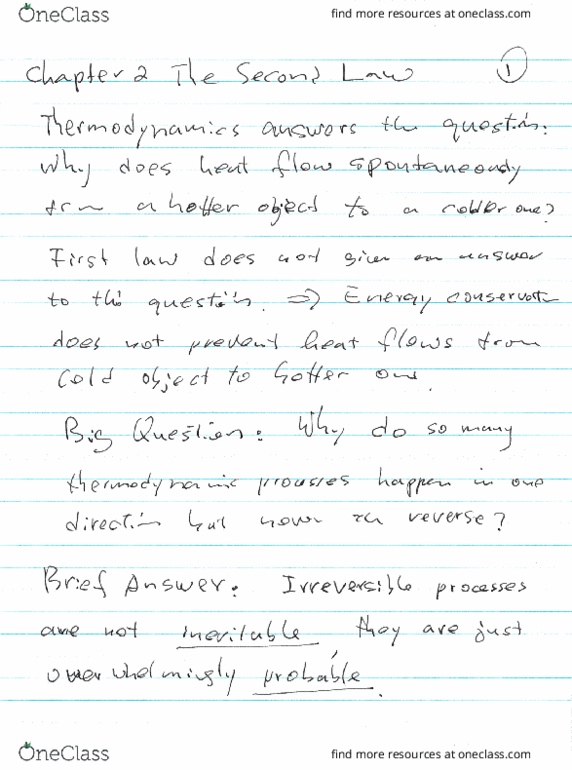 OneClass
find more resources at oneclass.com
Chapter 2 The Second Law
1
Thermodynamics answers the question:
Why does heat flow spontaneously
from a hotter object to a colder one?
First law does not given an answer
to this question. ⇒ Energy conservation
does not prevent heat flows from
cold object to hotter one.
Big Question: Why do so many
thermodynamic processes happen in one
direction but never the reverse?
Brief Answer: Irreversible processes
are not inevitable, they are just
overwhelmingly probable.
OneClass
find more resources at oneclass.com